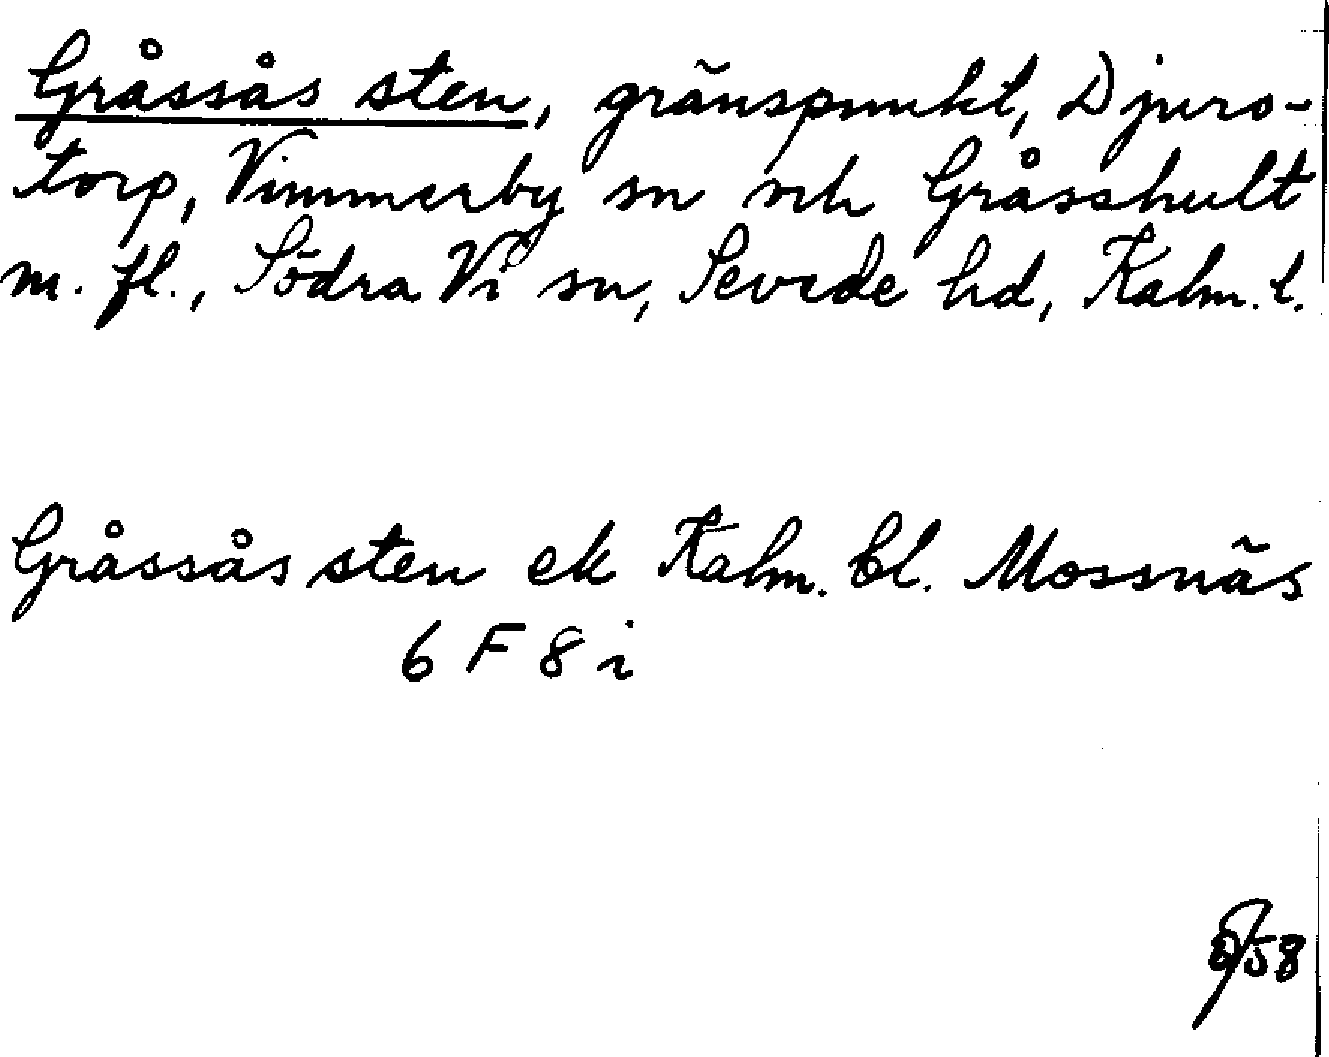 Gråssås sten, gränspunkt, Djurs-
torp, Vimmerby sn och Gråsshult
m. fl., Södra Vi sn, Sevede hd, Kalm. l.
Gråssås sten ek Kalm. bl. Mossnäs
6 F 8 i
58